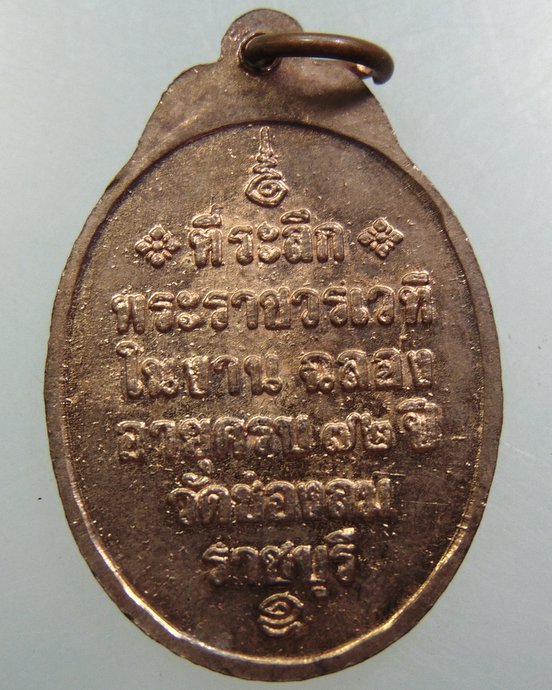 ที่ระลึก
พระราชวรเวที
ในงาน ฉลอง
อายุครบ ๗๒ ปี
วัดช่องลม
ราชบุรี